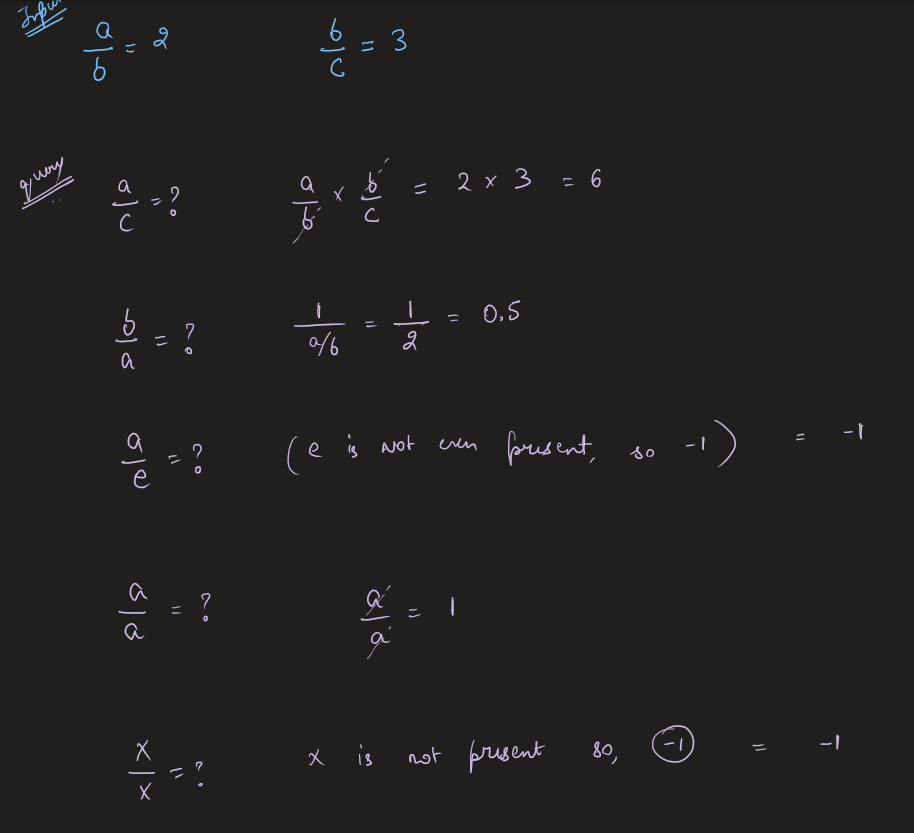 Input
a/b = 2 b/c = 3
query
a/c = ? a/b × b/c = 2 × 3 = 6
b/a = ? 1/(a/b) = 1/2 = 0.5
a/e = ? (e is not even present, so -1) = -1
a/a = ? a/a = 1
x/x = ? x is not present so, -1 = -1